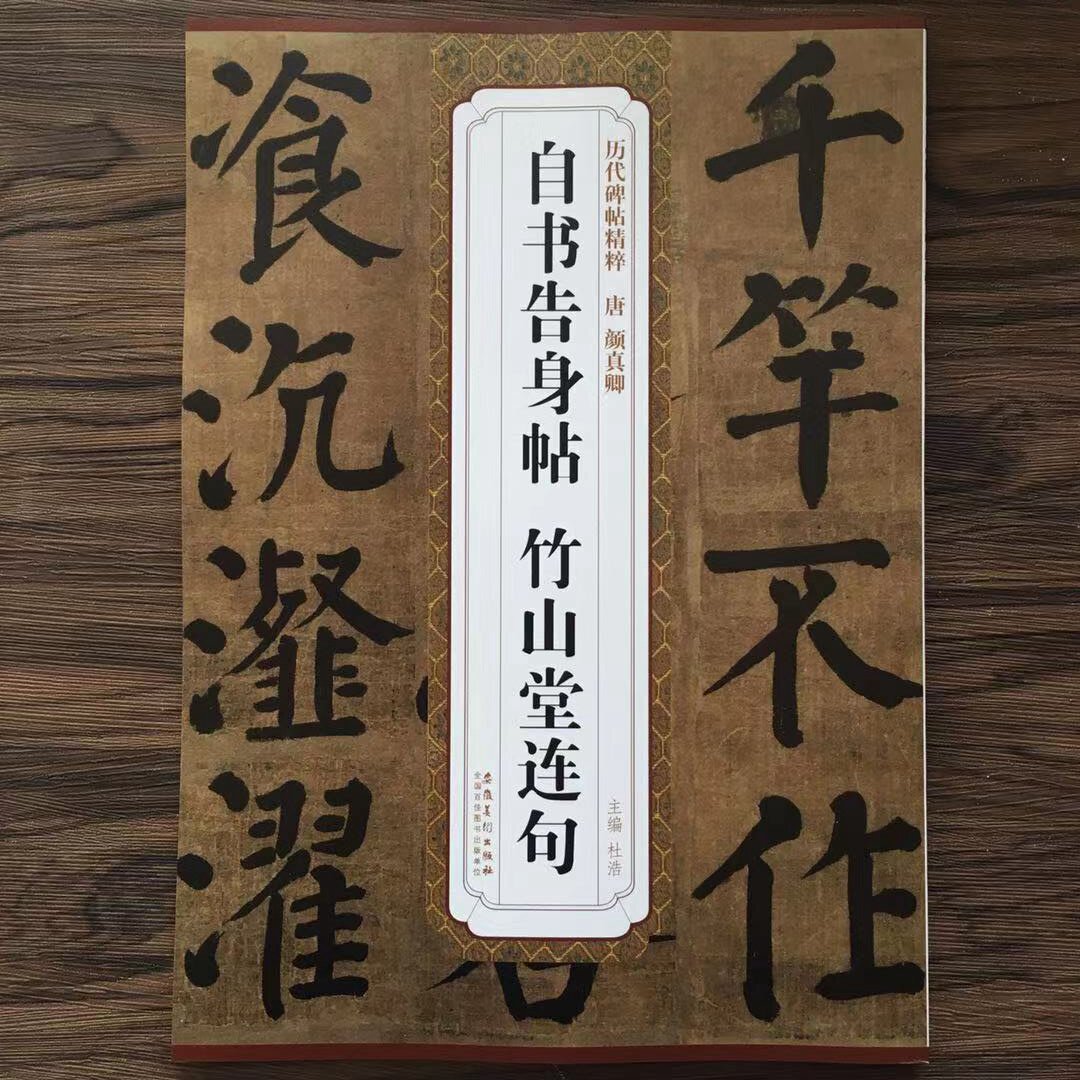 千竿不作
历代碑帖精粹 唐 颜真卿
自书告身帖 竹山堂连句
主编 杜浩
安徽美术出版社
全国百佳图书出版单位
飡沆瀣濯